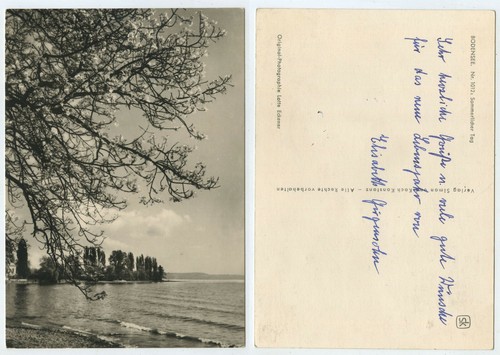 BODENSEE. Nr. 1012, Sommerlicher Tag
Sehr herzliche Grüße u. viele gute Wünsche
für das neue Lebensjahr von
Elisabeth
Verlag Simon + Koch Konstanz - Alle Rechte vorbehalten
Original-Photographie Lotte Eckener
SK